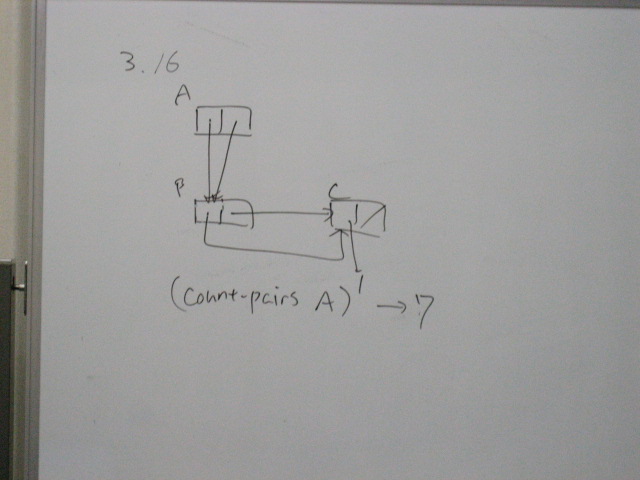 3.16
A
B
C
1
(count-pairs A) → 7